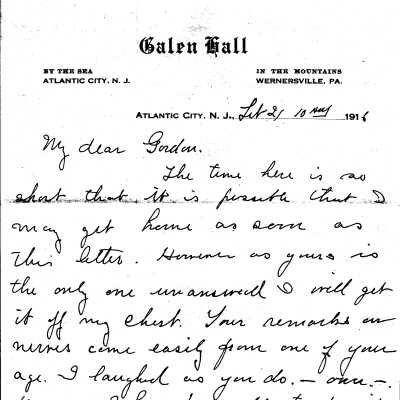 Galen Hall
BY THE SEA
ATLANTIC CITY, N. J.
IN THE MOUNTAINS
WERNERSVILLE, PA.
ATLANTIC CITY, N. J., Feb 21 10 1916
My dear Gordon.
The time here is so
short that it is possible that I
may get home as soon as
this letter. However as yours is
the only one unanswered I will get
it off my chest. Your remarks on
nerves come easily from one of your
age. I laughed as you do. –